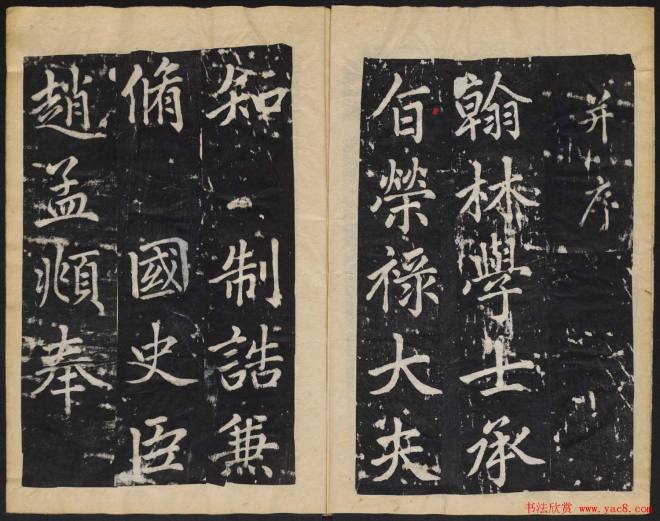 并序
翰林學士承
旨榮祿大夫
知制誥兼
脩國史臣
趙孟頫奉
书法欣赏 www.yac8.com